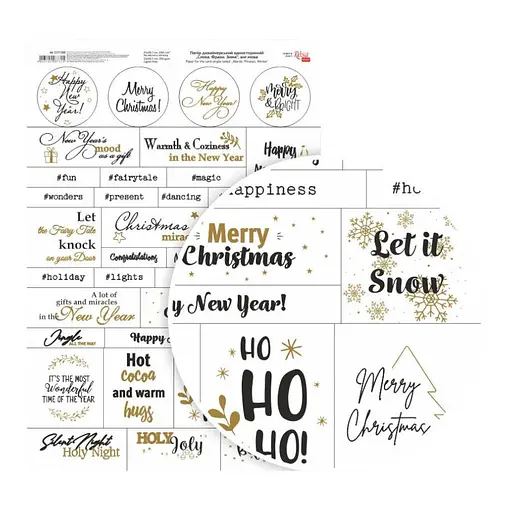 Папір дизайнерський односторонній
"Слова. Фрази. Зима", англ. мова
Rosa
Happy
New
Year!
Merry
Christmas!
Happy
New Year!
Merry
& BRIGHT
New Year's
mood
as a gift
Warmth & Coziness
in the New Year
Happy
#fun
#fairytale
#magic
#wonders
#present
#dancing
Let
the Fairy Tale
knock
on your Door
Christmas
mirac
Congratulations
#holiday
#lights
A lot of
gifts and miracles
in the New Year
Jingle
ALL THE WAY
Happy
IT'S THE MOST
Wonderful
TIME OF THE YEAR
Hot
cocoa
and warm
hugs
Silent Night
Holy Night
HOLY
Joly
appiness
#ho
Merry
Christmas
Let it
Snow
y New Year!
HO
HO
HO!
Merry
Christmas